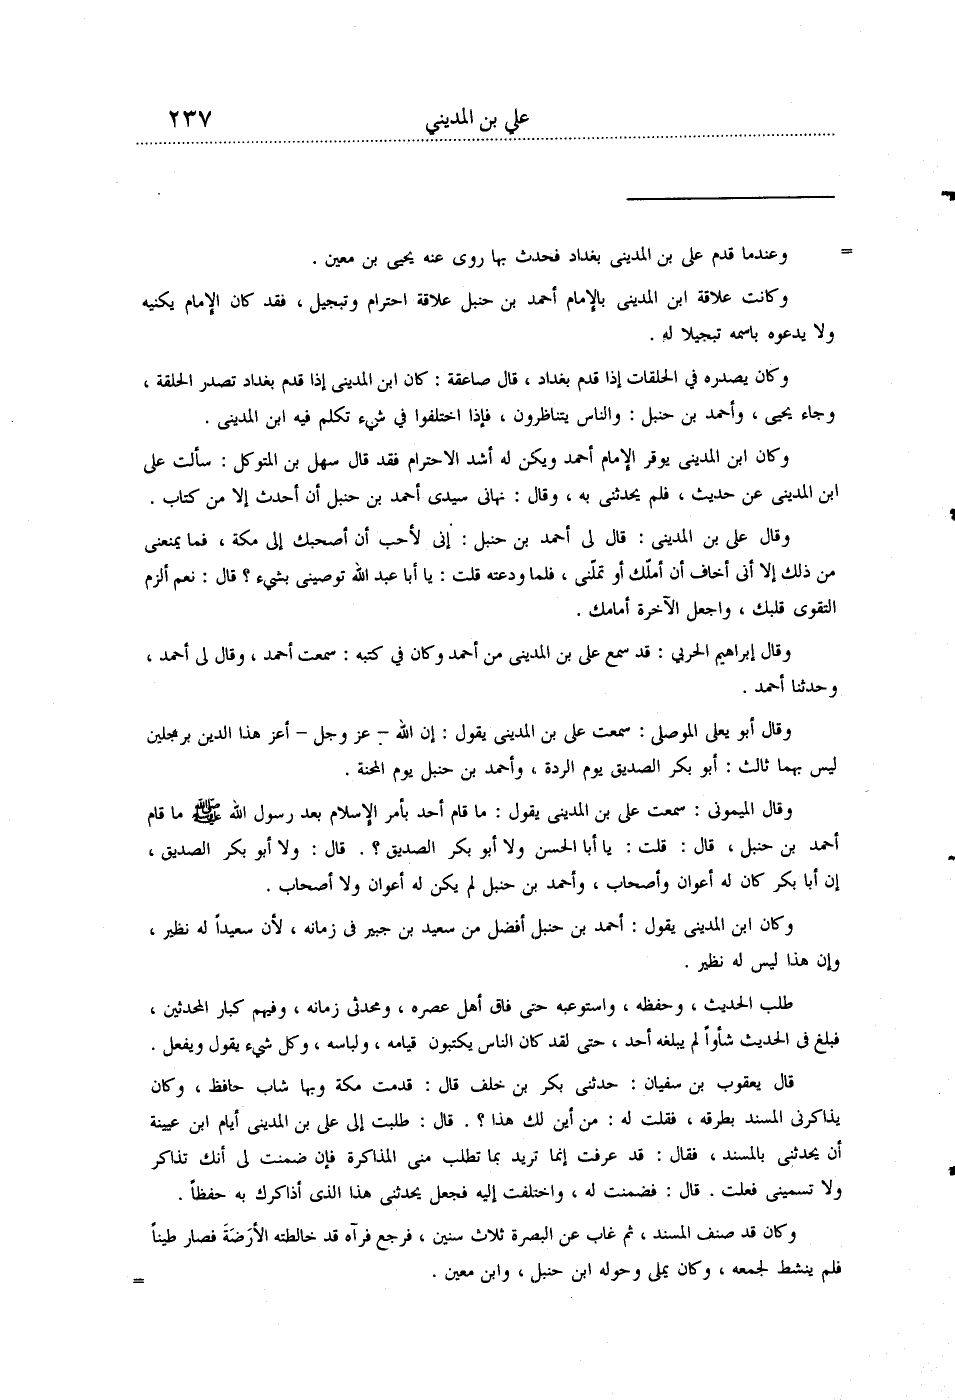 علي بن المديني ٢٣٧
= وعندما قدم على بن المدينى بغداد فحدث بها روى عنه يحيى بن معين .
وكانت علاقة ابن المدينى بالإمام أحمد بن حنبل علاقة احترام وتبجيل ، فقد كان الإمام يكنيه
ولا يدعوه باسمه تبجيلا له .
وكان يصدره في الحلقات إذا قدم بغداد ، قال صاعقة : كان ابن المدينى إذا قدم بغداد تصدر الحلقة ،
وجاء يحيى ، وأحمد بن حنبل : والناس يتناظرون ، فإذا اختلفوا في شيء تكلم فيه ابن المدينى .
وكان ابن المدينى يوقر الإمام أحمد ويكن له أشد الاحترام فقد قال سهل بن المتوكل : سألت على
ابن المدينى عن حديث ، فلم يحدثنى به ، وقال : نهانى سيدى أحمد بن حنبل أن أحدث إلا من كتاب .
وقال على بن المدينى : قال لى أحمد بن حنبل : إنى لأحب أن أصحبك إلى مكة ، فما يمنعنى
من ذلك إلا أنى أخاف أن أملّك أو تملّنى ، فلما ودعته قلت : يا أبا عبد الله توصينى بشيء ؟ قال : نعم ألزم
التقوى قلبك ، واجعل الآخرة أمامك .
وقال إبراهيم الحربي : قد سمع على بن المدينى من أحمد وكان في كتبه : سمعت أحمد ، وقال لى أحمد ،
وحدثنا أحمد .
وقال أبو يعلى الموصلى : سمعت على بن المدينى يقول : إن الله – عز وجل – أعز هذا الدين برجلين
ليس بهما ثالث : أبو بكر الصديق يوم الردة ، وأحمد بن حنبل يوم المحنة .
وقال الميمونى : سمعت على بن المدينى يقول : ما قام أحد بأمر الإسلام بعد رسول الله ﷺ ما قام
أحمد بن حنبل ، قال : قلت : يا أبا الحسن ولا أبو بكر الصديق ؟ . قال : ولا أبو بكر الصديق ،
إن أبا بكر كان له أعوان وأصحاب ، وأحمد بن حنبل لم يكن له أعوان ولا أصحاب .
وكان ابن المدينى يقول : أحمد بن حنبل أفضل من سعيد بن جبير فى زمانه ، لأن سعيداً له نظير ،
وإن هذا ليس له نظير .
طلب الحديث ، وحفظه ، واستوعبه حتى فاق أهل عصره ، ومحدثى زمانه ، وفيهم كبار المحدثين ،
فبلغ فى الحديث شأواً لم يبلغه أحد ، حتى لقد كان الناس يكتبون قيامه ، ولباسه ، وكل شيء يقول ويفعل .
قال يعقوب بن سفيان : حدثنى بكر بن خلف قال : قدمت مكة وبها شاب حافظ ، وكان
يذاكرنى المسند بطرقه ، فقلت له : من أين لك هذا ؟ . قال : طلبت إلى على بن المدينى أيام ابن عيينة
أن يحدثنى بالمسند ، فقال : قد عرفت إنما تريد بما تطلب منى المذاكرة فإن ضمنت لى أنك تذاكر
ولا تسمينى فعلت . قال : فضمنت له ، واختلفت إليه فجعل يحدثنى هذا الذى أذاكرك به حفظاً .
وكان قد صنف المسند ، ثم غاب عن البصرة ثلاث سنين ، فرجع فرآه قد خالطته الأرَضَة فصار طيناً
فلم ينشط لجمعه ، وكان يملى وحوله ابن حنبل ، وابن معين . =